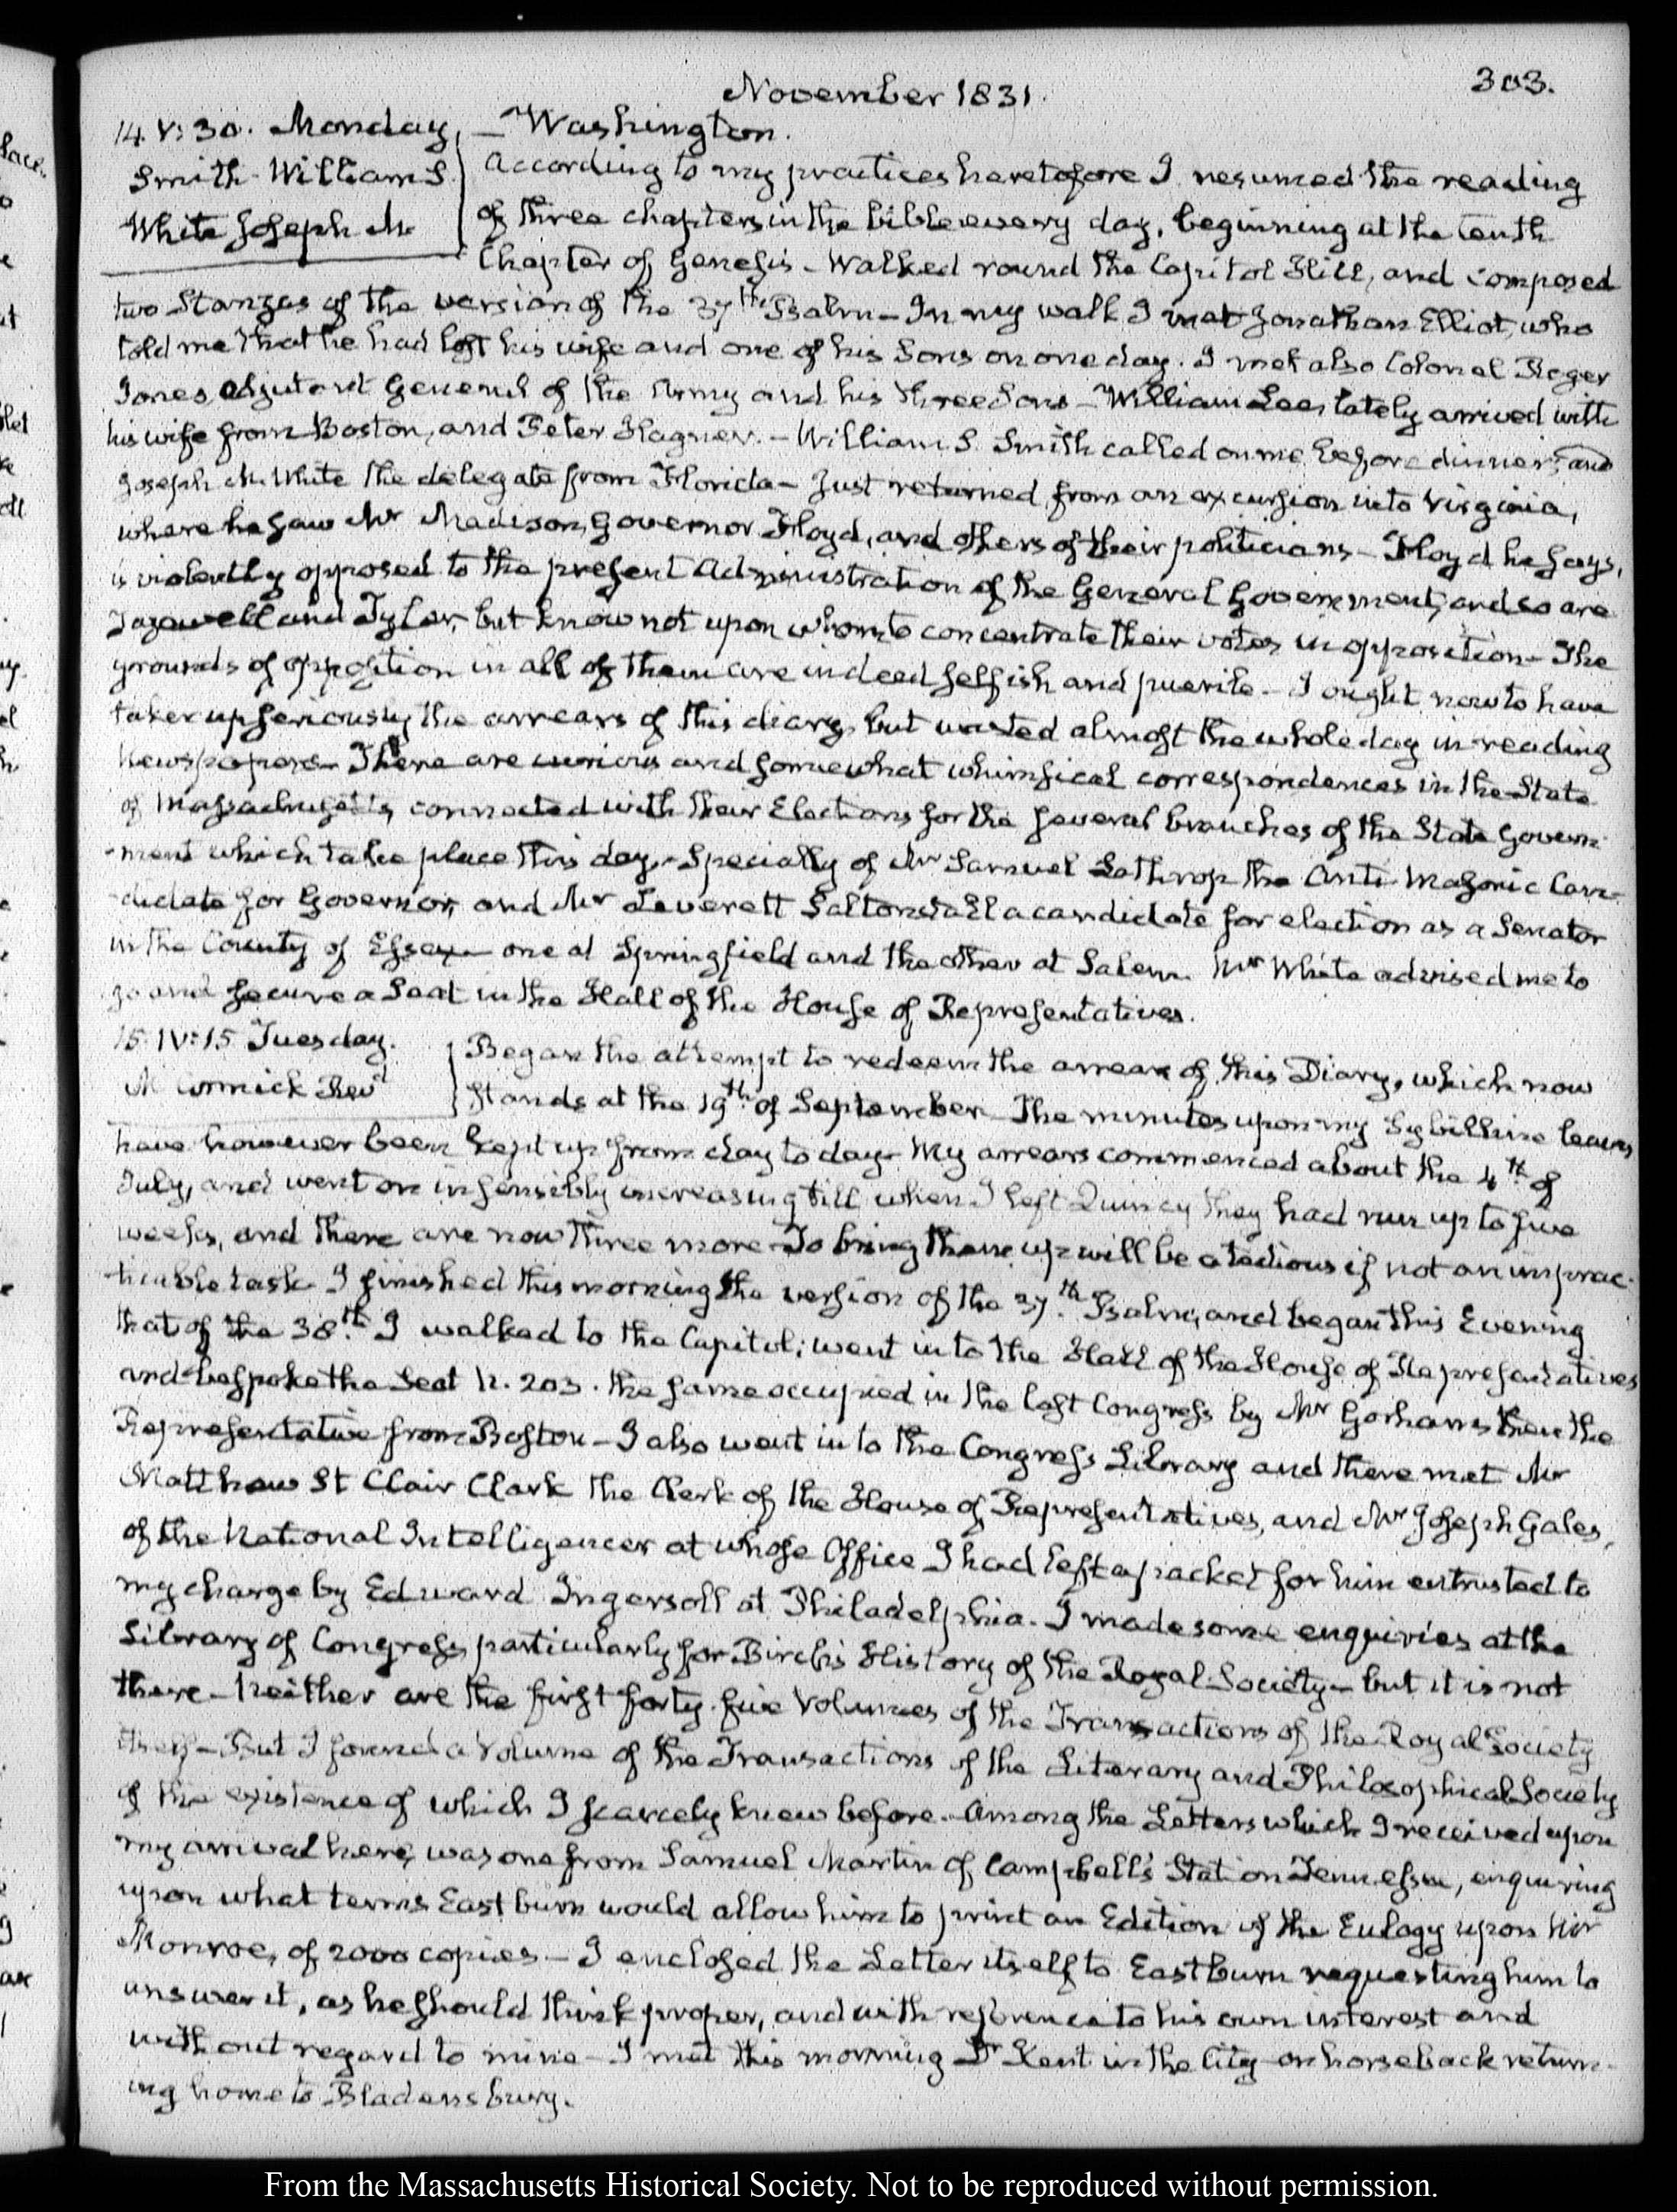 November 1831.
303.
14. V:30. Monday, — Washington.
Smith William S.
White Joseph M.
According to my practices heretofore I resumed the reading
of three chapters in the bible every day, beginning at the tenth
Chapter of Genesis — Walked round the Capitol Hill, and composed
two Stanzas of the version of the 37th Psalm — In my walk I met Jonathan Elliot, who
told me that he had lost his wife and one of his Sons on one day. I met also Colonel Roger
Jones, adjutant General of the Army and his three Sons — William Lee, lately arrived with
his wife from Boston, and Peter Hagner. — William S. Smith called on me before dinner; and
Joseph M. White the delegate from Florida — Just returned from an excursion into Virginia,
where he saw Mr Madison, Governor Floyd, and others of their politicians — Floyd he says,
is violently opposed to the present Administration of the General Government, and so are
Tazewell and Tyler, but know not upon whom to concentrate their votes in opposition — The
grounds of opposition in all of them are indeed selfish and puerile — I ought now to have
taken up seriously the arrears of this diary, but wasted almost the whole day in reading
Newspapers — There are curious and somewhat whimsical correspondences in the State
of Massachusetts, connected with their Elections for the several branches of the State Govern-
-ment which take place this day — Specially of Mr Samuel Lathrop the Anti-Masonic Can-
-didate for Governor, and Mr Leverett Saltonstall a candidate for election as a Senator
in the County of Essex — one at Springfield and the other at Salem. Mr White advised me to
go and secure a Seat in the Hall of the House of Representatives.
15. IV:15 Tuesday.
M Cormick Revd
Began the attempt to redeem the arrears of this Diary, which now
stands at the 19th of September — The minutes upon my Sybilline leaves
have however been kept up from day to day — My arrears commenced about the 4th of
July, and went on insensibly increasing till when I left Quincy they had run up to five
weeks, and there are now three more — To bring them up will be a tedious if not an imprac-
-ticable task — I finished this morning the version of the 37th Psalm, and began this Evening
that of the 38th. I walked to the Capitol; went in to the Hall of the House of Representatives
and bespoke the Seat N. 203. the same occupied in the last Congress by Mr Gorham then the
Representative from Boston — I also went in to the Congress Library and there met Mr
Matthew St Clair Clark the Clerk of the House of Representatives, and Mr Joseph Gales,
of the National Intelligencer at whose Office I had left a packet for him entrusted to
my charge by Edward Ingersoll at Philadelphia. I made some enquiries at the
Library of Congress particularly for Birch's History of the Royal Society — but it is not
there — Neither are the first forty-five Volumes of the Transactions of the Royal Society
itself — But I found a Volume of the Transactions of the Literary and Philosophical Society
of the existence of which I scarcely knew before. Among the Letters which I received upon
my arrival here, was one from Samuel Martin of Campbell's Station Tennessee, enquiring
upon what terms Eastburn would allow him to print an Edition of the Eulogy upon Mr
Monroe, of 2000 copies — I enclosed the Letter itself to Eastburn requesting him to
answer it, as he should think proper, and with reference to his own interest and
without regard to mine — I met this morning Dr Kent in the City on horseback return-
ing home to Bladensburg.
From the Massachusetts Historical Society. Not to be reproduced without permission.